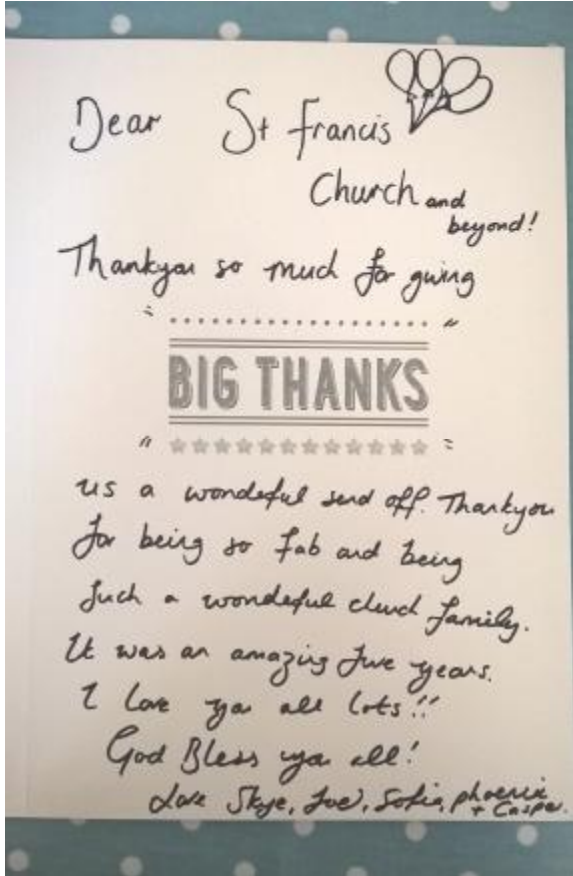 Dear St Francis
Church and
beyond!
Thankyou so much for giving
BIG THANKS
us a wonderful send off. Thankyou
for being so fab and being
such a wonderful church family.
It was an amazing five years.
I love you all lots!!
God Bless you all!
Love Skye, Joe, Sofia, phoenix
+ Casper.